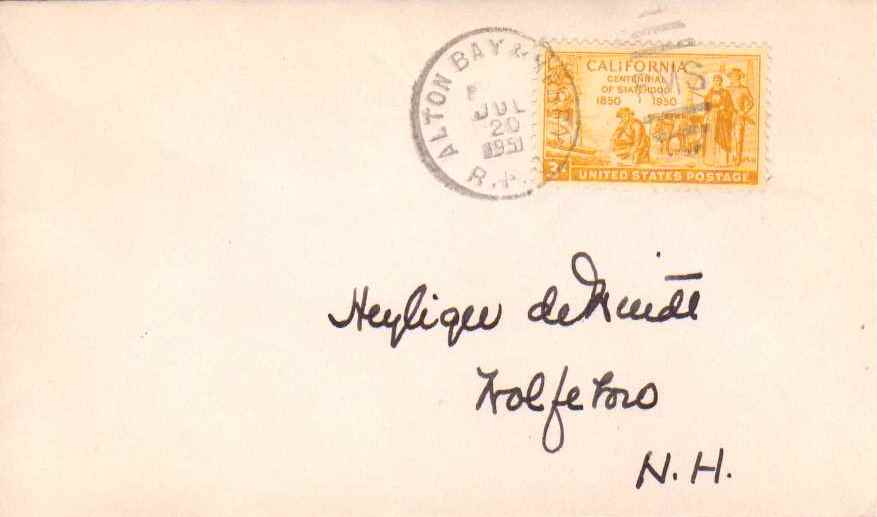 ALTON BAY &
JUL
20
1951
R.
RMS
CALIFORNIA
CENTENNIAL
OF STATEHOOD
1850 1950
3¢
UNITED STATES POSTAGE
Heyliger de Windt
Wolfeboro
N.H.